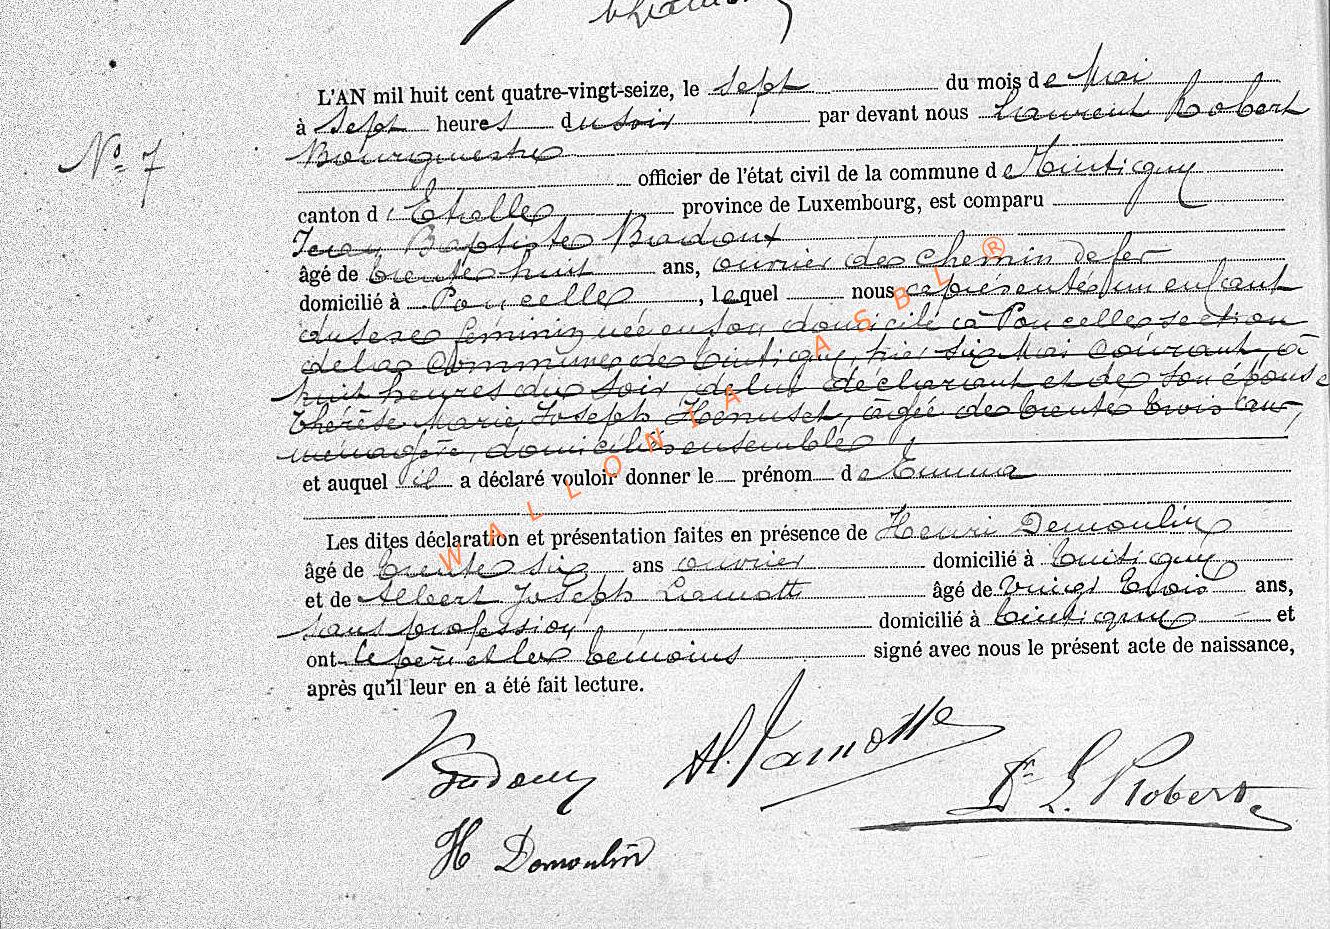 L'AN mil huit cent quatre-vingt-seize, le sept du mois de Mai
à sept heures du soir par devant nous Laurent Robert
Bourgmestre
N° 7
officier de l'état civil de la commune de Tintigny
canton d'Etalle, province de Luxembourg, est comparu
Jean Baptiste Bradoux
âgé de trente huit ans, ouvrier de chemin de fer
domicilié à Poncelle, lequel nous a présenté un enfant
du sexe feminin née en son domicile à Poncelle section
de la Commune de Tintigny, hier six Mai courant, à
huit heures du soir, de lui déclarant et de son épouse
Thérèse Marie Joseph Henuset, âgée de trente trois ans,
ménagère, domiciliés ensemble,
et auquel il a déclaré vouloir donner le prénom de Emma
Les dites déclaration et présentation faites en présence de Henri Demoulin
âgé de trente six ans ouvrier domicilié à Tintigny
et de Albert Joseph Lamotte âgé de vingt trois ans,
sans profession domicilié à Tintigny et
ont le père et les temoins signé avec nous le présent acte de naissance,
après qu'il leur en a été fait lecture.
Al. Lamotte
Dr L. Robert
H Demoulin
WALLONIA ASBL ®